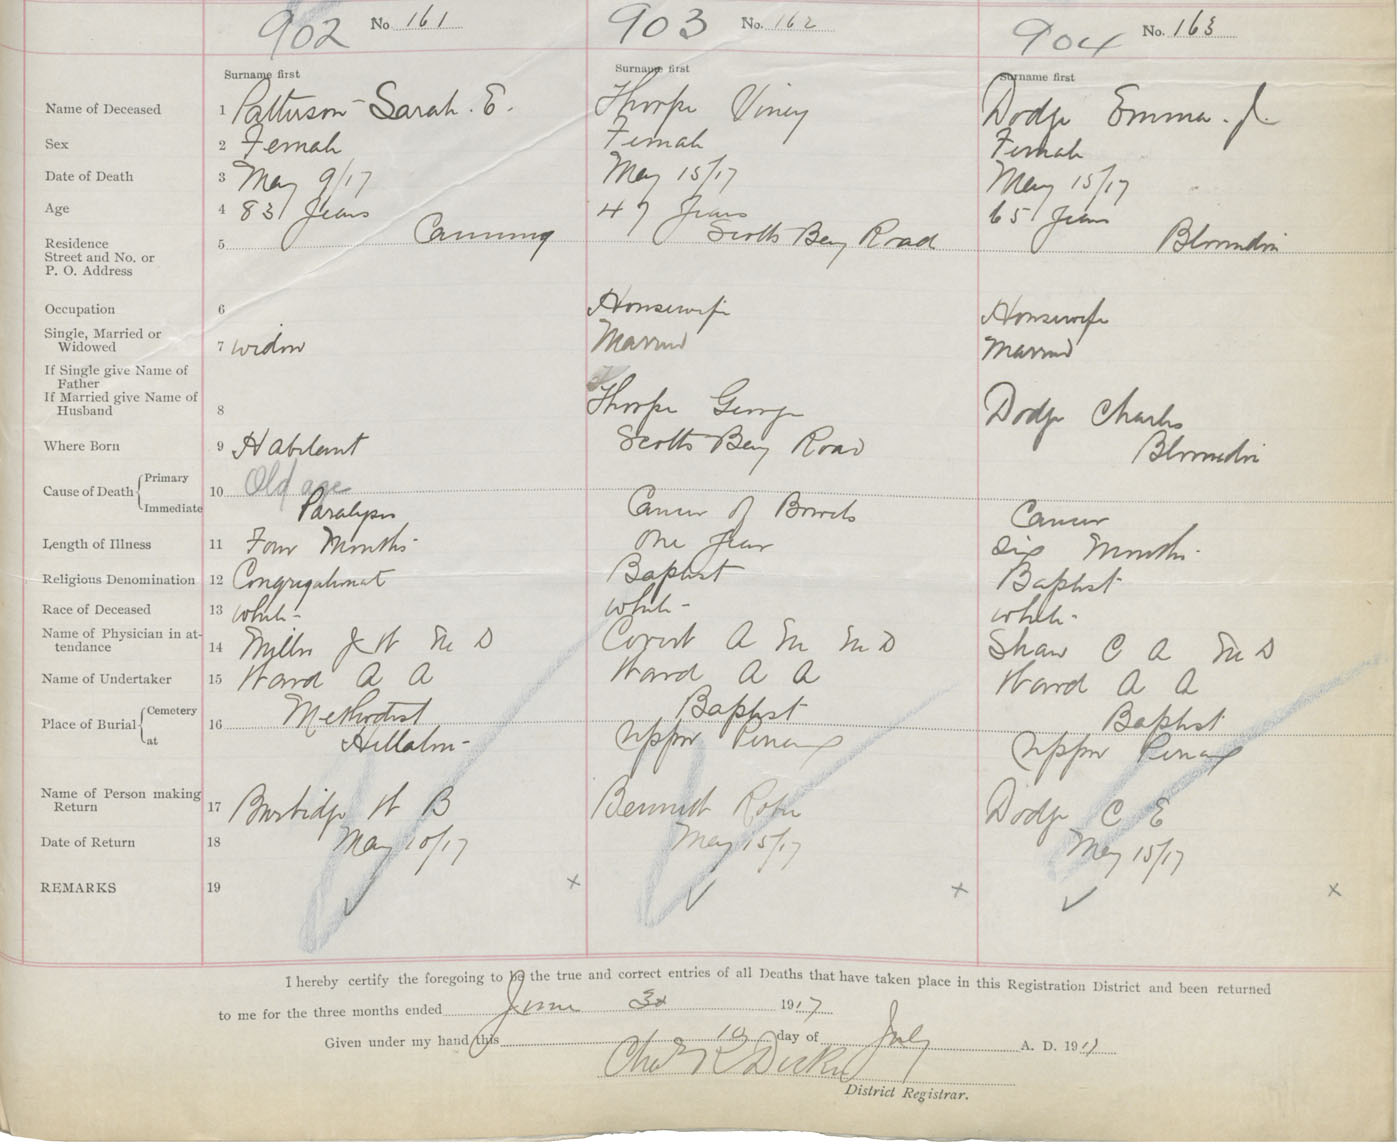 902 No. 161 903 No. 162 904 No. 163
Surname first Surname first Surname first
Name of Deceased 1 Patterson Sarah. E. Thorpe Viney Dodge Emma. J.
Sex 2 Female Female Female
Date of Death 3 May 9/17 May 15/17 May 15/17
Age 4 83 Years 47 Years 65 Years
Residence 5 Canning Scotts Bay Road Blomidon
Street and No. or
P. O. Address
Occupation 6 Housewife Housewife
Single, Married or
Widowed 7 widow Married Married
If Single give Name of
Father
If Married give Name of
Husband 8 Thorpe George Dodge Charles
Where Born 9 Habitant Scotts Bay Road Blomidon
Cause of Death { Primary 10 Old age
Immediate Paralysis Cancer of Bowels Cancer
Length of Illness 11 Four Months One Year Six Months
Religious Denomination 12 Congregationalist Baptist Baptist
Race of Deceased 13 white white white
Name of Physician in at-
tendance 14 Miller J W M D Covert A M M D Shaw C A M D
Name of Undertaker 15 Ward A A Ward A A Ward A A
Place of Burial { Cemetery 16 Methodist Baptist Baptist
at Hillaton Upper Pereau Upper Pereau
Name of Person making
Return 17 Burbidge W B Bennett Dodge C E
Date of Return 18 May 10/17 May 15/17 May 15/17
REMARKS 19 x x x
I hereby certify the foregoing to be the true and correct entries of all Deaths that have taken place in this Registration District and been returned
to me for the three months ended June 30 1917
Given under my hand this 10 day of July A. D. 1917
Chas R Dickie
District Registrar.